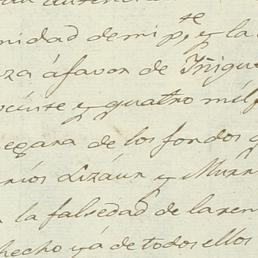 nidad de mi p.te y la
za á favor de Yñigu
veinte y quatro mil
egara de los fondos q
rios Lizáur y Murr
la falsedad de la ren
hecho y á de todos ellos